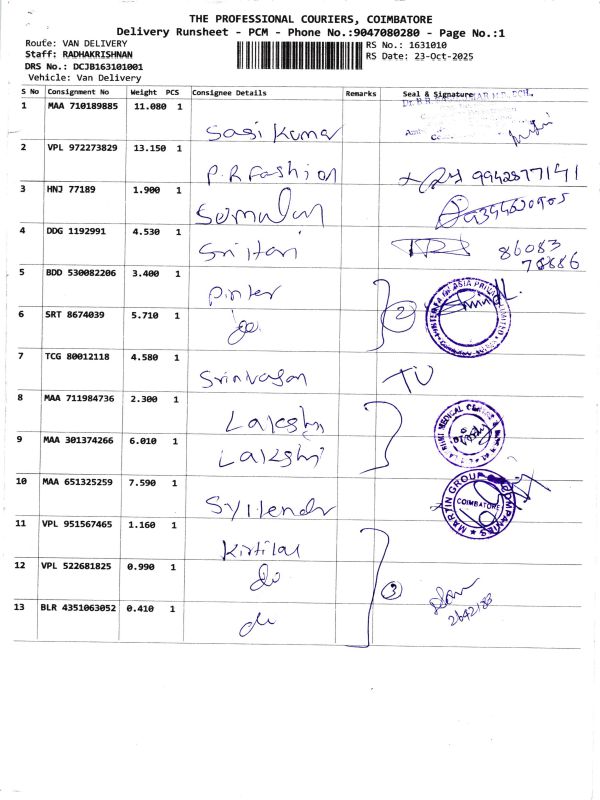 THE PROFESSIONAL COURIERS, COIMBATORE
Delivery Runsheet - PCM - Phone No.:9047080280 - Page No.:1
Route: VAN DELIVERY
RS No.: 1631010
Staff: RADHAKRISHNAN
RS Date: 23-Oct-2025
DRS No.: DCJB163101001
Vehicle: Van Delivery
S No Consignment No Weight PCS Consignee Details Remarks Seal & Signature
1 MAA 710189885 11.080 1 Sasi Kumar
2 VPL 972273829 13.150 1 P.R Fashion 9942877141
3 HNJ 77189 1.900 1
4 DDG 1192991 4.530 1 Sri Hari 86083
78886
5 BDD 530082206 3.400 1 Pinter 2
6 SRT 8674039 5.710 1 do
7 TCG 80012118 4.580 1 Srinivasan TV
8 MAA 711984736 2.300 1 Lakshmi
9 MAA 301374266 6.010 1 Lakshmi
10 MAA 651325259 7.590 1
MARTIN GROUP OF COMPANIES
COIMBATORE
11 VPL 951567465 1.160 1 Kirtilal
12 VPL 522681825 0.990 1 do 3
13 BLR 4351063052 0.410 1 do 2642183